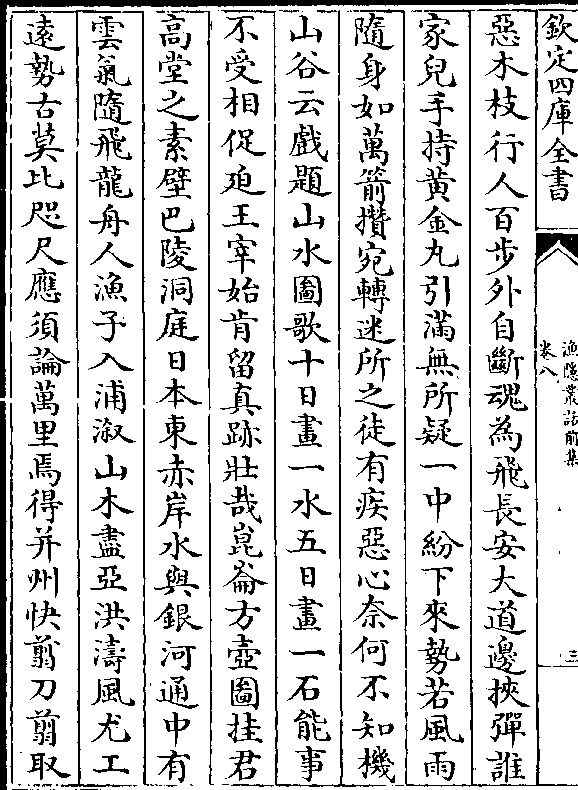 欽定四庫全書
漁隱叢話前集
卷八
三
惡木枝行人百步外自斷魂為飛長安大道邊挾彈誰
家兒手持黃金丸引滿無所疑一中紛下來勢若風雨
隨身如萬箭攢宛轉迷所之徒有疾惡心奈何不知機
山谷云戲題山水圖歌十日畫一水五日畫一石能事
不受相促廹王宰始肯留真跡壯哉崑崙方壺圖挂君
高堂之素壁巴陵洞庭日本東赤岸水與銀河通中有
雲氣隨飛龍舟人漁子入浦溆山木盡亞洪濤風尤工
遠勢古莫比咫尺應須論萬里焉得并州快翦刀翦取